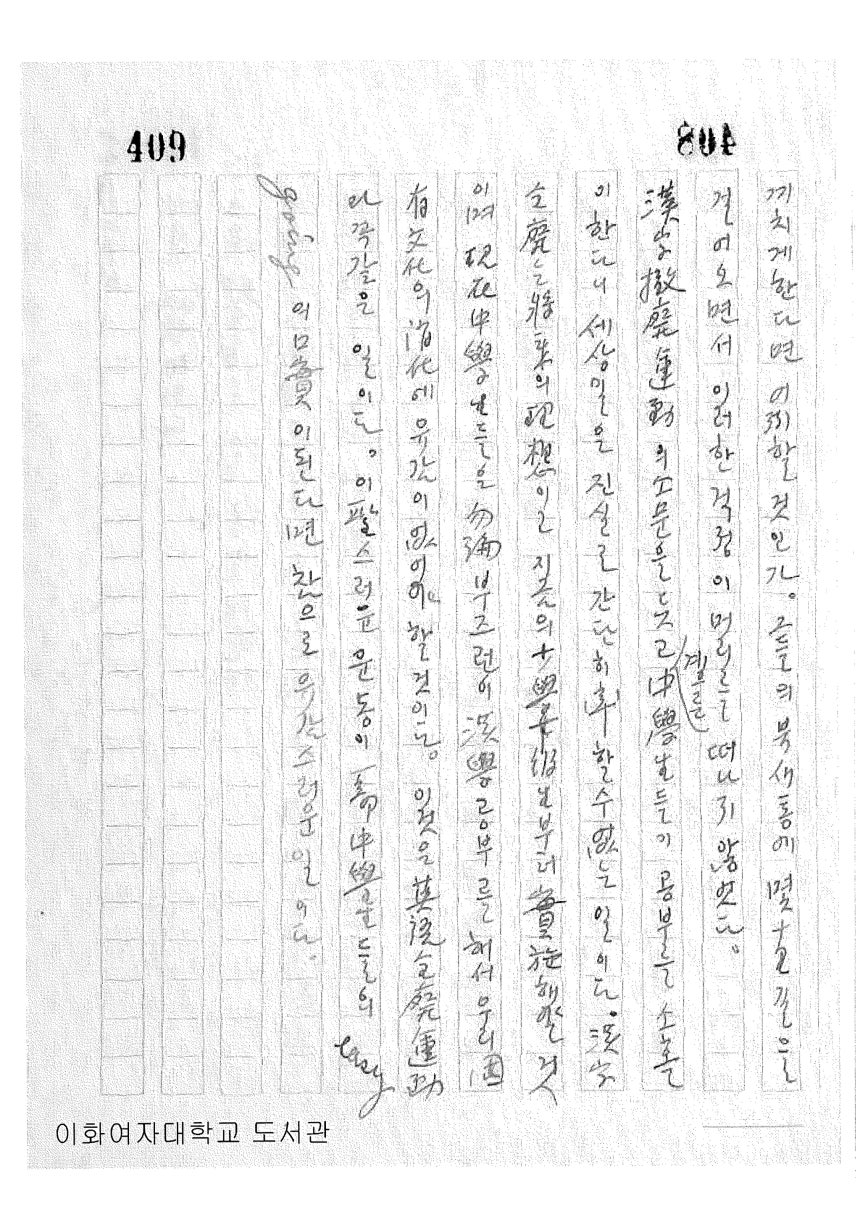 408
409
끼치게한다면 어찌할것인가。그들의 북새통에 몇十里길을
걸어오면서 이러한 걱정이 머리를 떠나지 않었다。
漢字撤廃運動의 소문을 듯고 中學生들이 공부를 소홀
이한다니 세상일은 진실로 간단히 할수없는 일이다。漢字
全廃는 將来의 理想이오 지금의 小學 級生부터 實施해야할것
이며 現在中學生들은 勿論 부즈런이 漢學공부를 해서 우리固
有文化의 消化에 유감이 없어야 할것이다。이것은 英語全廃運動
과 꼭같은 일이다。이 스러운 운동이 中學生들의 easy
going의 口實이된다면 참으로 유감스러운일이다。
이화여자대학교 도서관